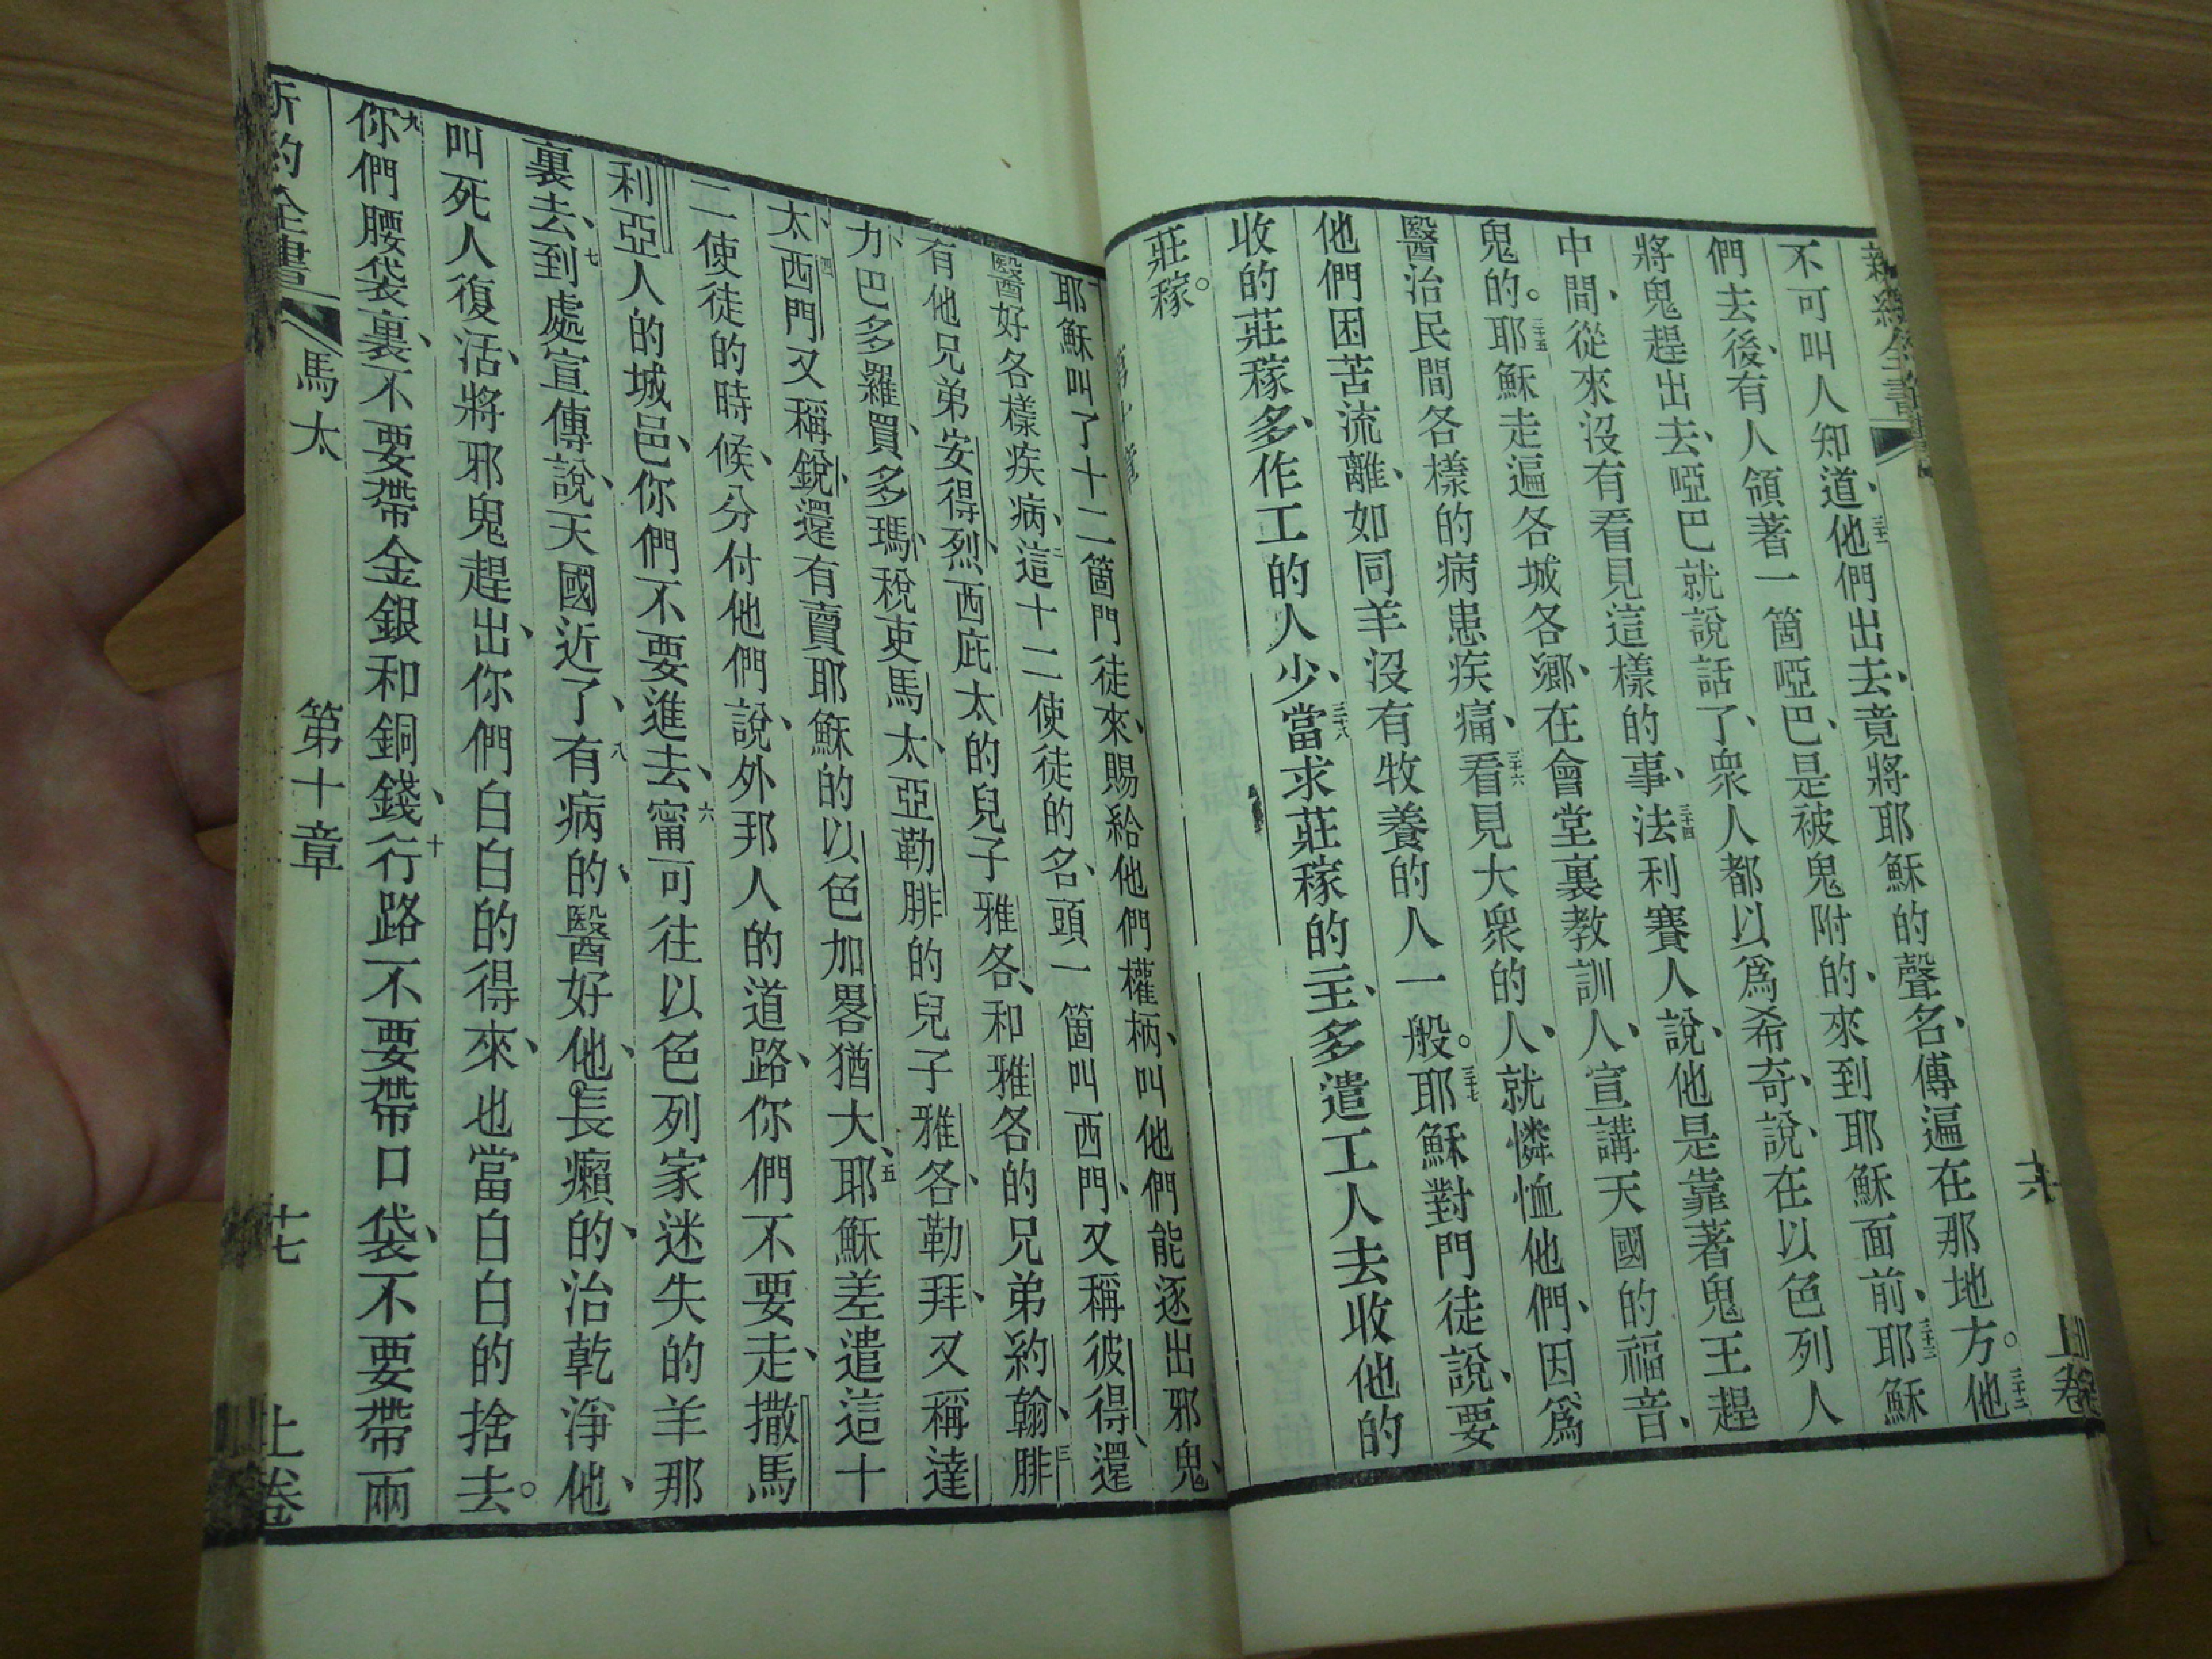 新約全書
不可叫人知道、三十一他們出去、竟將耶穌的聲名、傳遍在那地方。三十二他
們去後、有人領著一箇啞巴、是被鬼附的、來到耶穌面前、三十三耶穌
將鬼趕出去、啞巴就說話了、衆人都以爲希奇、說、在以色列人
中間、從來沒有看見這樣的事、三十四法利賽人說、他是靠著鬼王趕
鬼的。三十五耶穌走遍各城各鄉、在會堂裏教訓人、宣講天國的福音、
醫治民間各樣的病患疾痛、三十六看見大衆的人、就憐恤他們、因爲
他們困苦流離、如同羊沒有牧養的人一般。三十七耶穌對門徒說、要
收的莊稼多、作工的人少、三十八當求莊稼的主、多遣工人去收他的
莊稼。
十六
上卷
第十章
一耶穌叫了十二箇門徒來、賜給他們權柄、叫他們能逐出邪鬼、
醫好各樣疾病、二這十二使徒的名、頭一箇叫西門、又稱彼得、還
有他兄弟安得烈、西庇太的兒子雅各、和雅各的兄弟約翰、三腓
力、巴多羅買、多瑪、稅吏馬太、亞勒腓的兒子雅各、勒拜、又稱達
太、四西門又稱銳、還有賣耶穌的以色加畧猶大、五耶穌差遣這十
二使徒的時候、分付他們說、外邦人的道路、你們不要走、撒馬
利亞人的城邑、你們不要進去、六甯可往以色列家迷失的羊那
裏去、七到處宣傳說、天國近了、八有病的、醫好他、長癩的、治乾淨他、
叫死人復活、將邪鬼趕出、你們白白的得來、也當白白的捨去。
九你們腰袋裏、不要帶金銀和銅錢、十行路不要帶口袋、不要帶兩
新約全書
馬太
第十章
十七
上卷